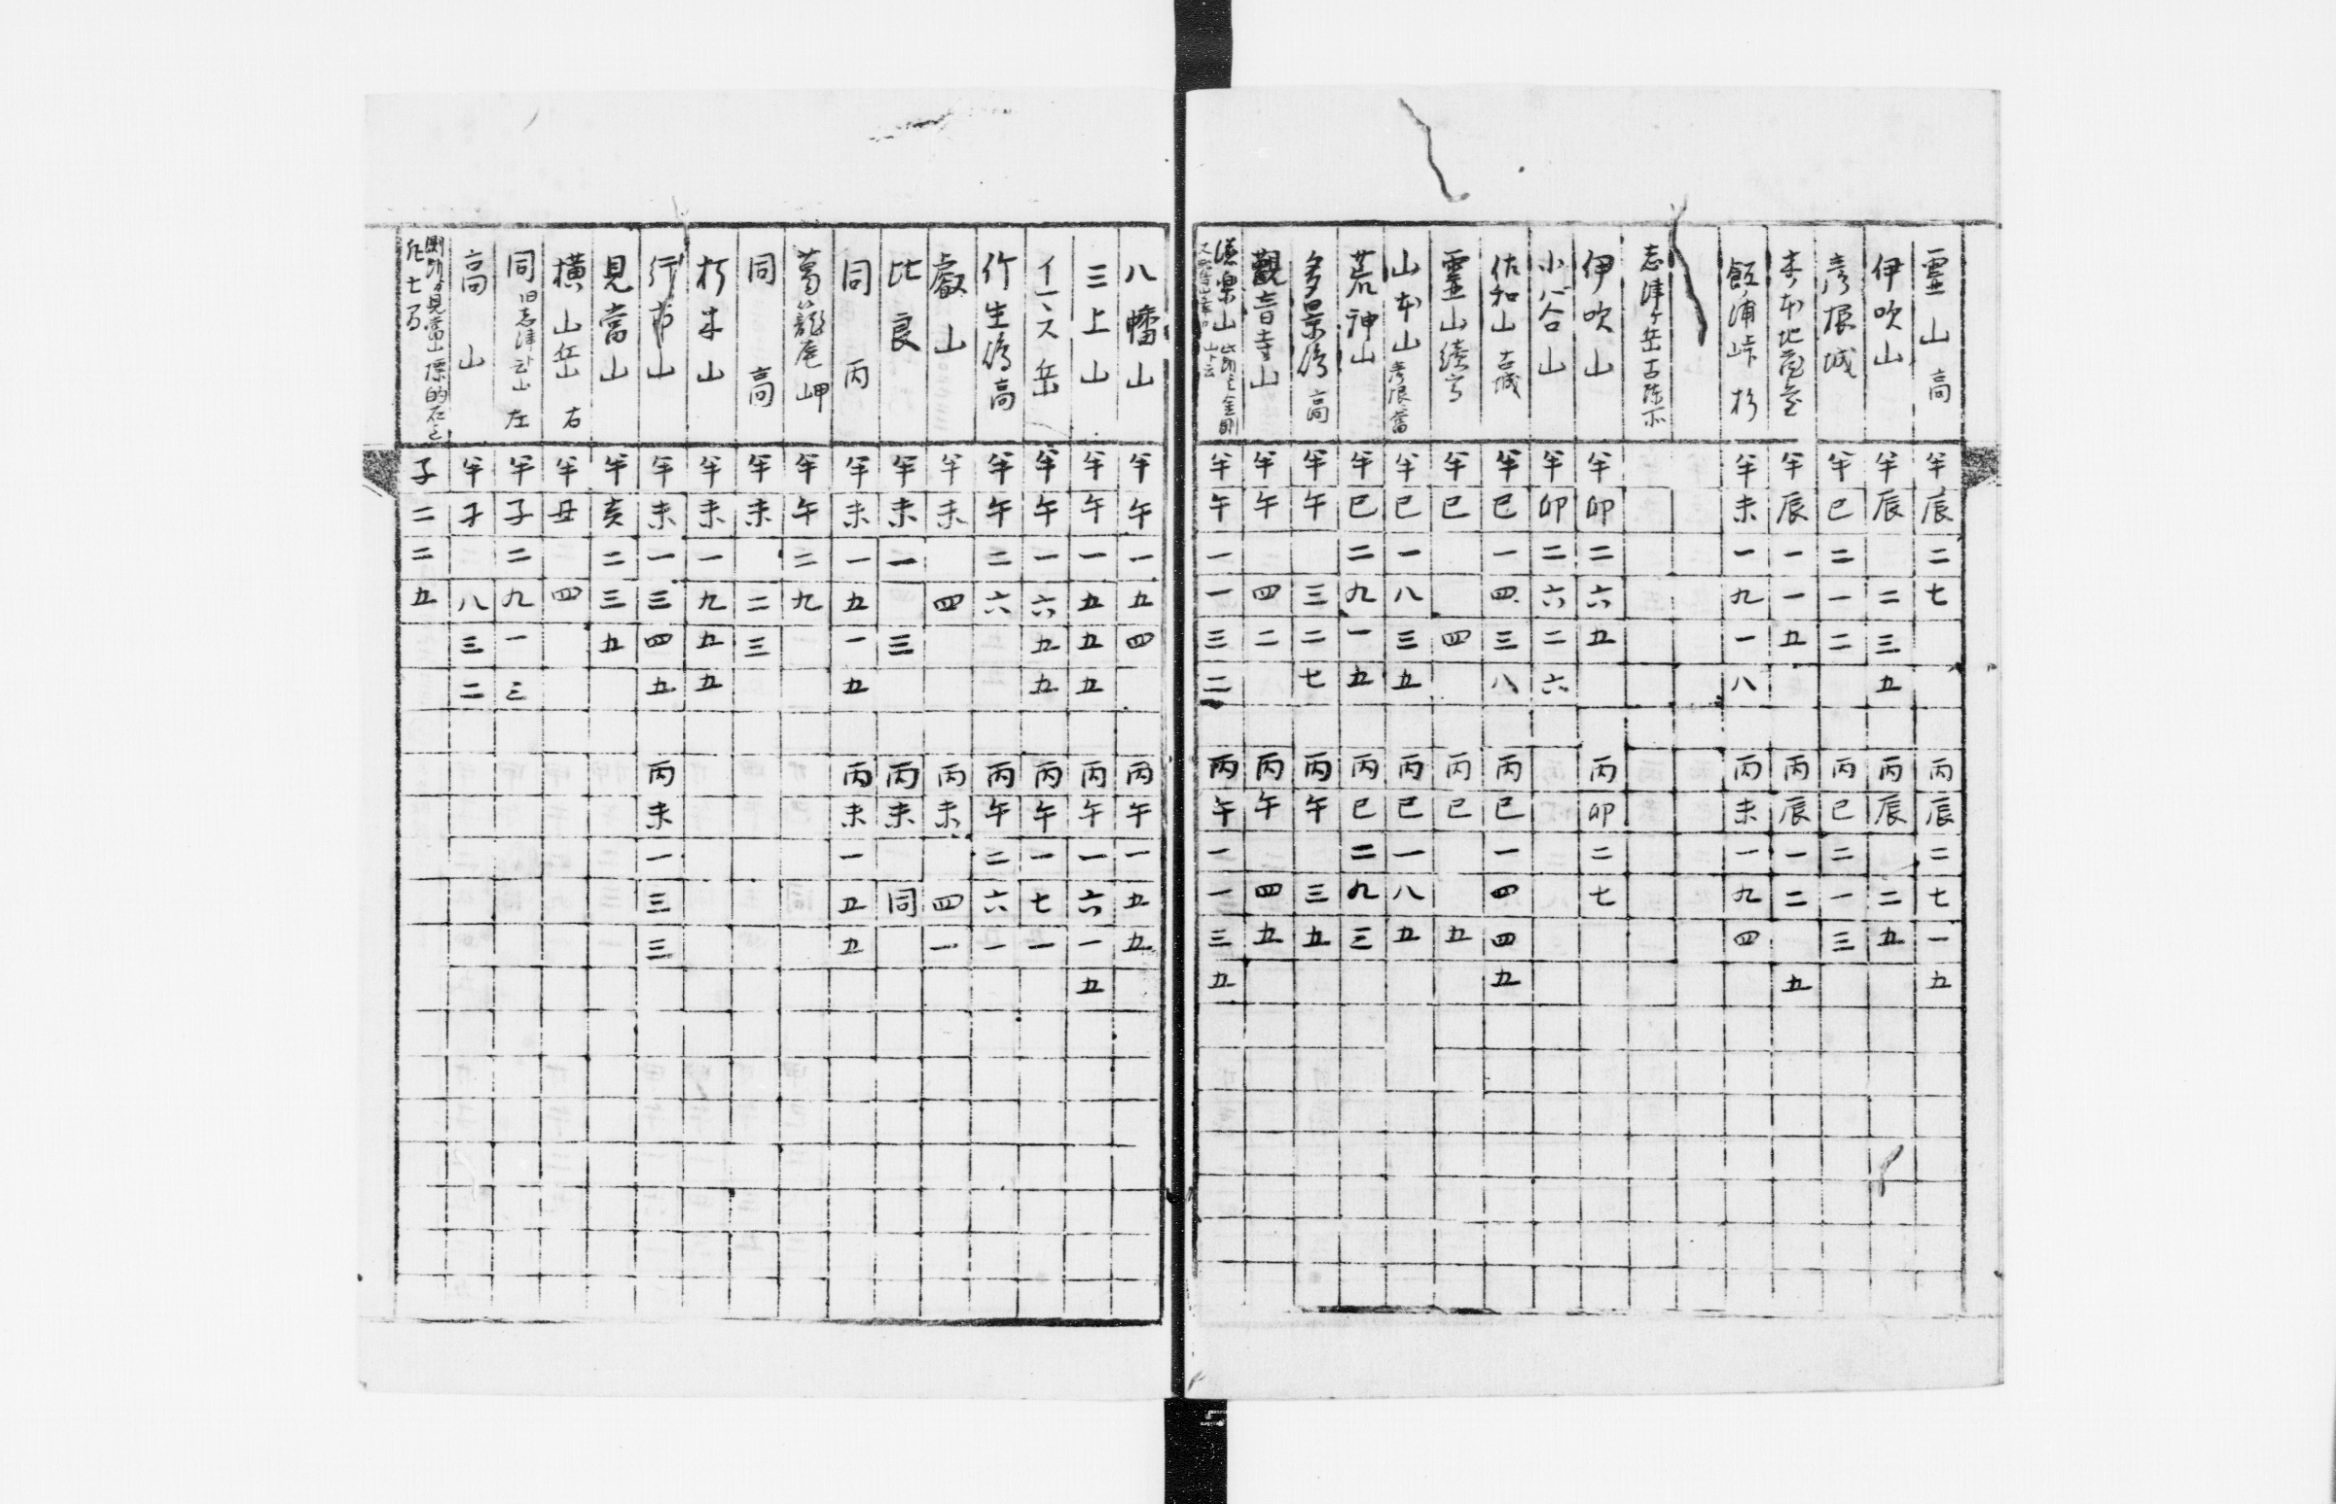 靈山高 半辰二七 丙辰二七一五
伊吹山 半辰二三五 丙辰二五
彦根城 半巳二一二 丙巳二一三
木本地蔵堂 半辰一一五 丙辰一二五
飯浦峠 杉 半未一九一八 丙未一九四
志津ヶ岳古陣所
伊吹山 半卯二六五 丙卯二七
小谷山 半卯二六二六
佐和山 古城 半巳一四三八 丙巳一四四五
靈山續高 半巳四 丙巳五
山本山 半巳一八三五 丙巳一八五
荒神山 半巳二九一五 丙巳二九三
多景嶋 高 半午三二七 丙午三五
觀音寺山 半午四二 丙午四五
山 半午一一三二 丙午一一三五
八幡山 半午一五四 丙午一五五
三上山 半午一五五五 丙午一六一五
岳 半午一六五五 丙午一七一
竹生嶋高 半午二六 丙午二六一
叡山 半未四 丙未四一
比良 半未一三 丙未同
同 丙 半未一五一五 丙未一五五
葛籠尾岬 半午二九
同 高 半未二三
朽木山 半未一九五五
行市山 半未一三四五 丙未一三三
見當山 半亥二三五
横山岳 右 半丑四
同 左 半子二九一三
高山 半子八三二
見當山 標的 子二二五